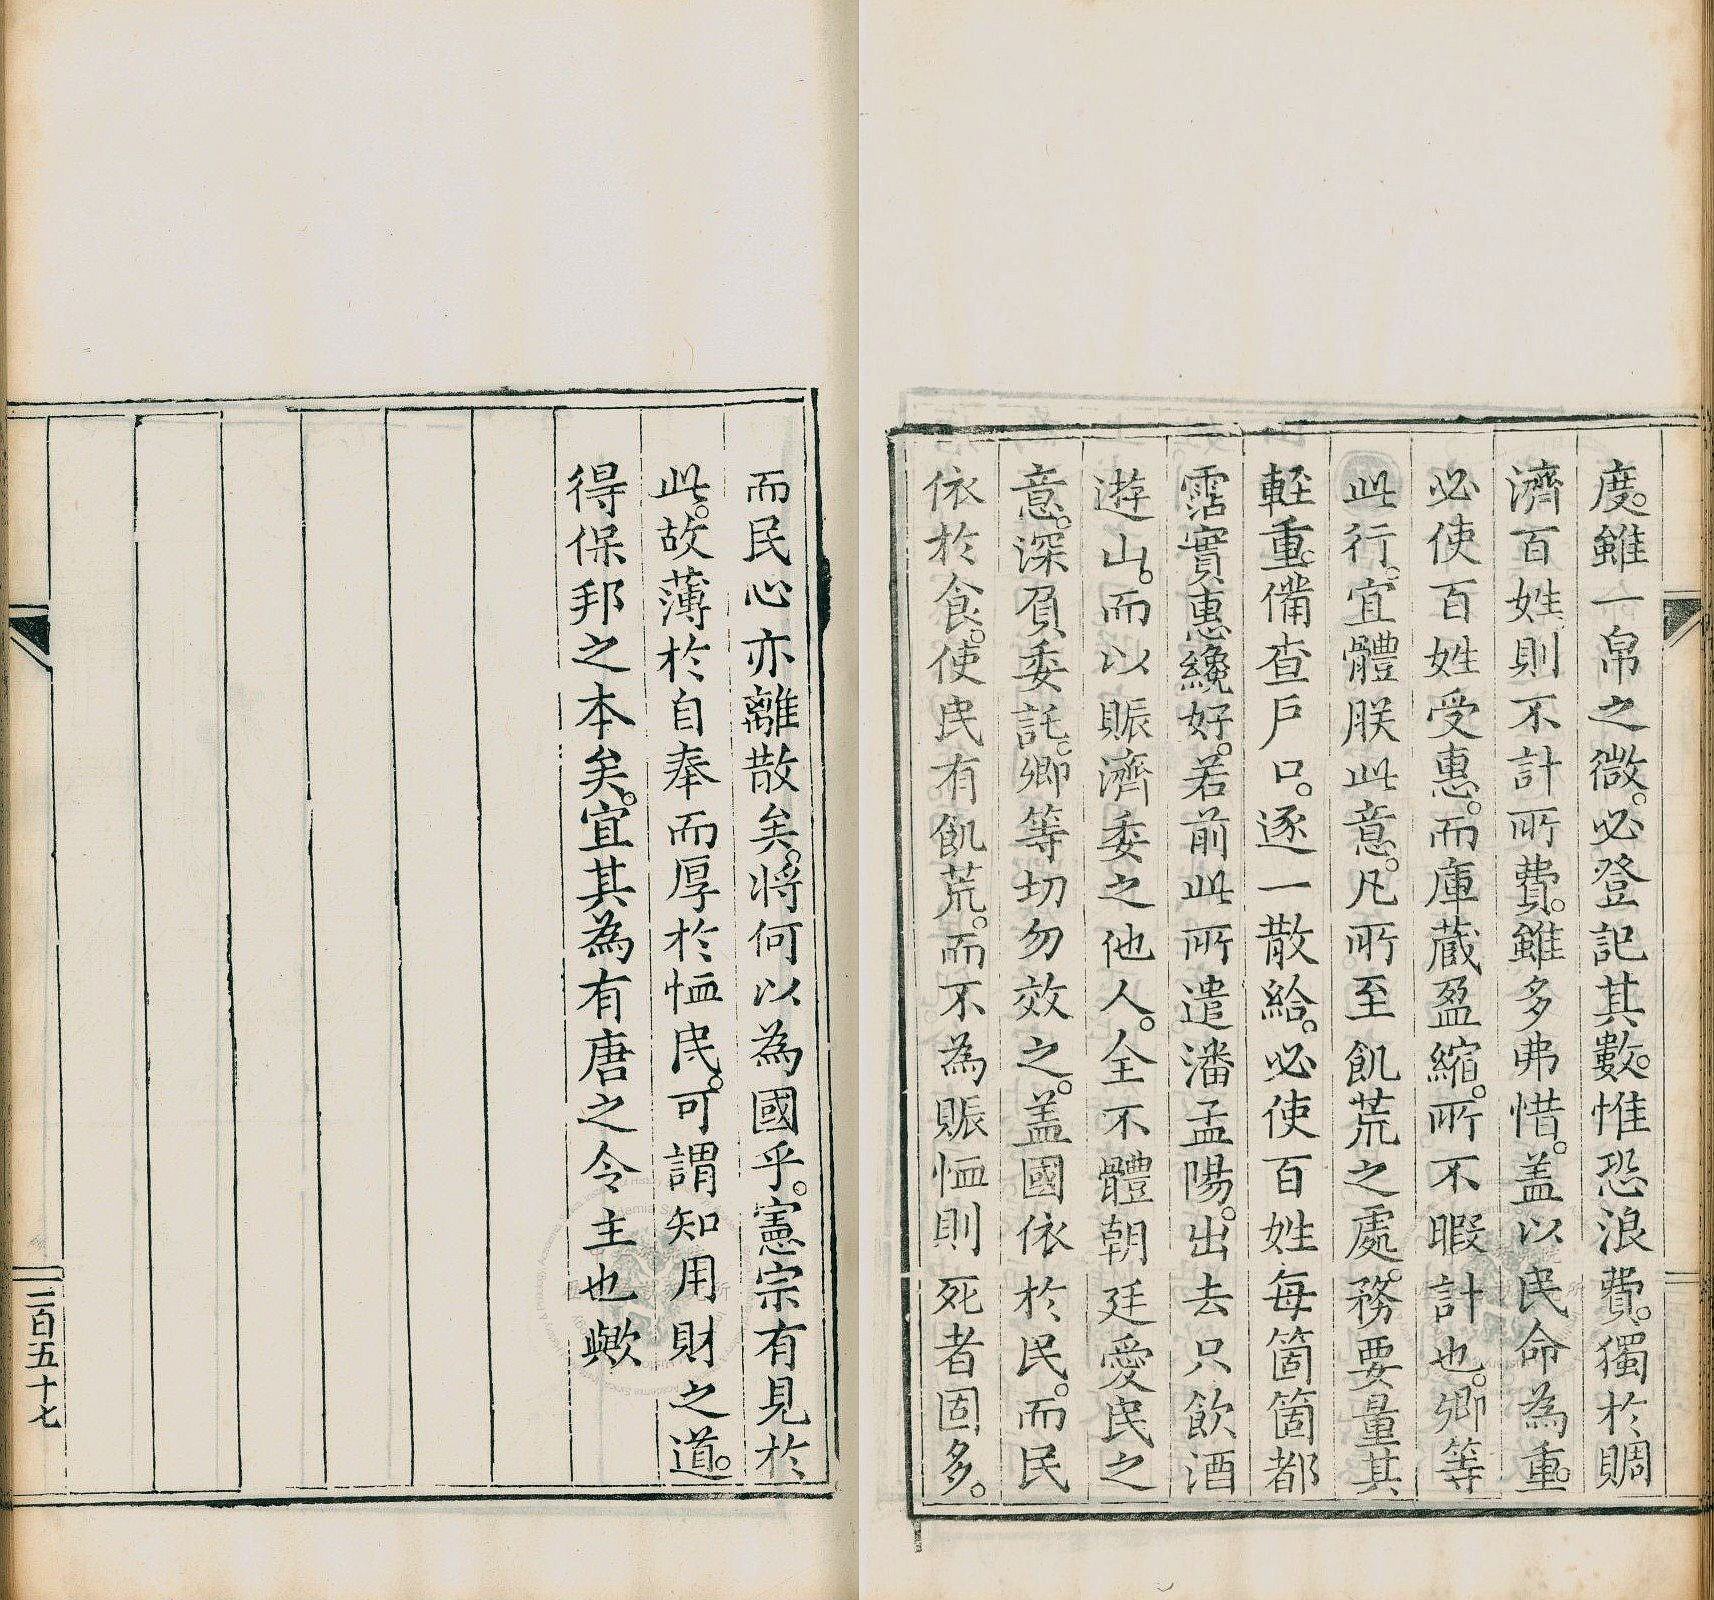 度。雖一帛之微。必登記其數。惟恐浪費。獨於賙
濟百姓則不計所費。雖多弗惜。盖以民命為重。
必使百姓受惠。而庫藏盈縮。所不暇計也。卿等
此行。宜體朕此意。凡所至飢荒之處。務要量其
輕重。備查戶口。逐一散給。必使百姓每箇箇都
霑實惠纔好。若前此所遣潘孟陽。出去只飲酒
遊山。而以賑濟委之他人。全不體朝廷愛民之
意。深負委託。卿等切勿效之。盖國依於民。而民
依於食。使民有飢荒。而不為賑恤則死者固多。
而民心亦離散矣。將何以為國乎。憲宗有見於
此。故薄於自奉而厚於恤民。可謂知用財之道。
得保邦之本矣。宜其為有唐之令主也歟
二百五十七